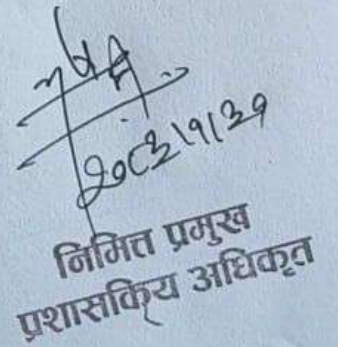 २०८३|१|३१
निमित्त प्रमुख
प्रशासकिय अधिकृत